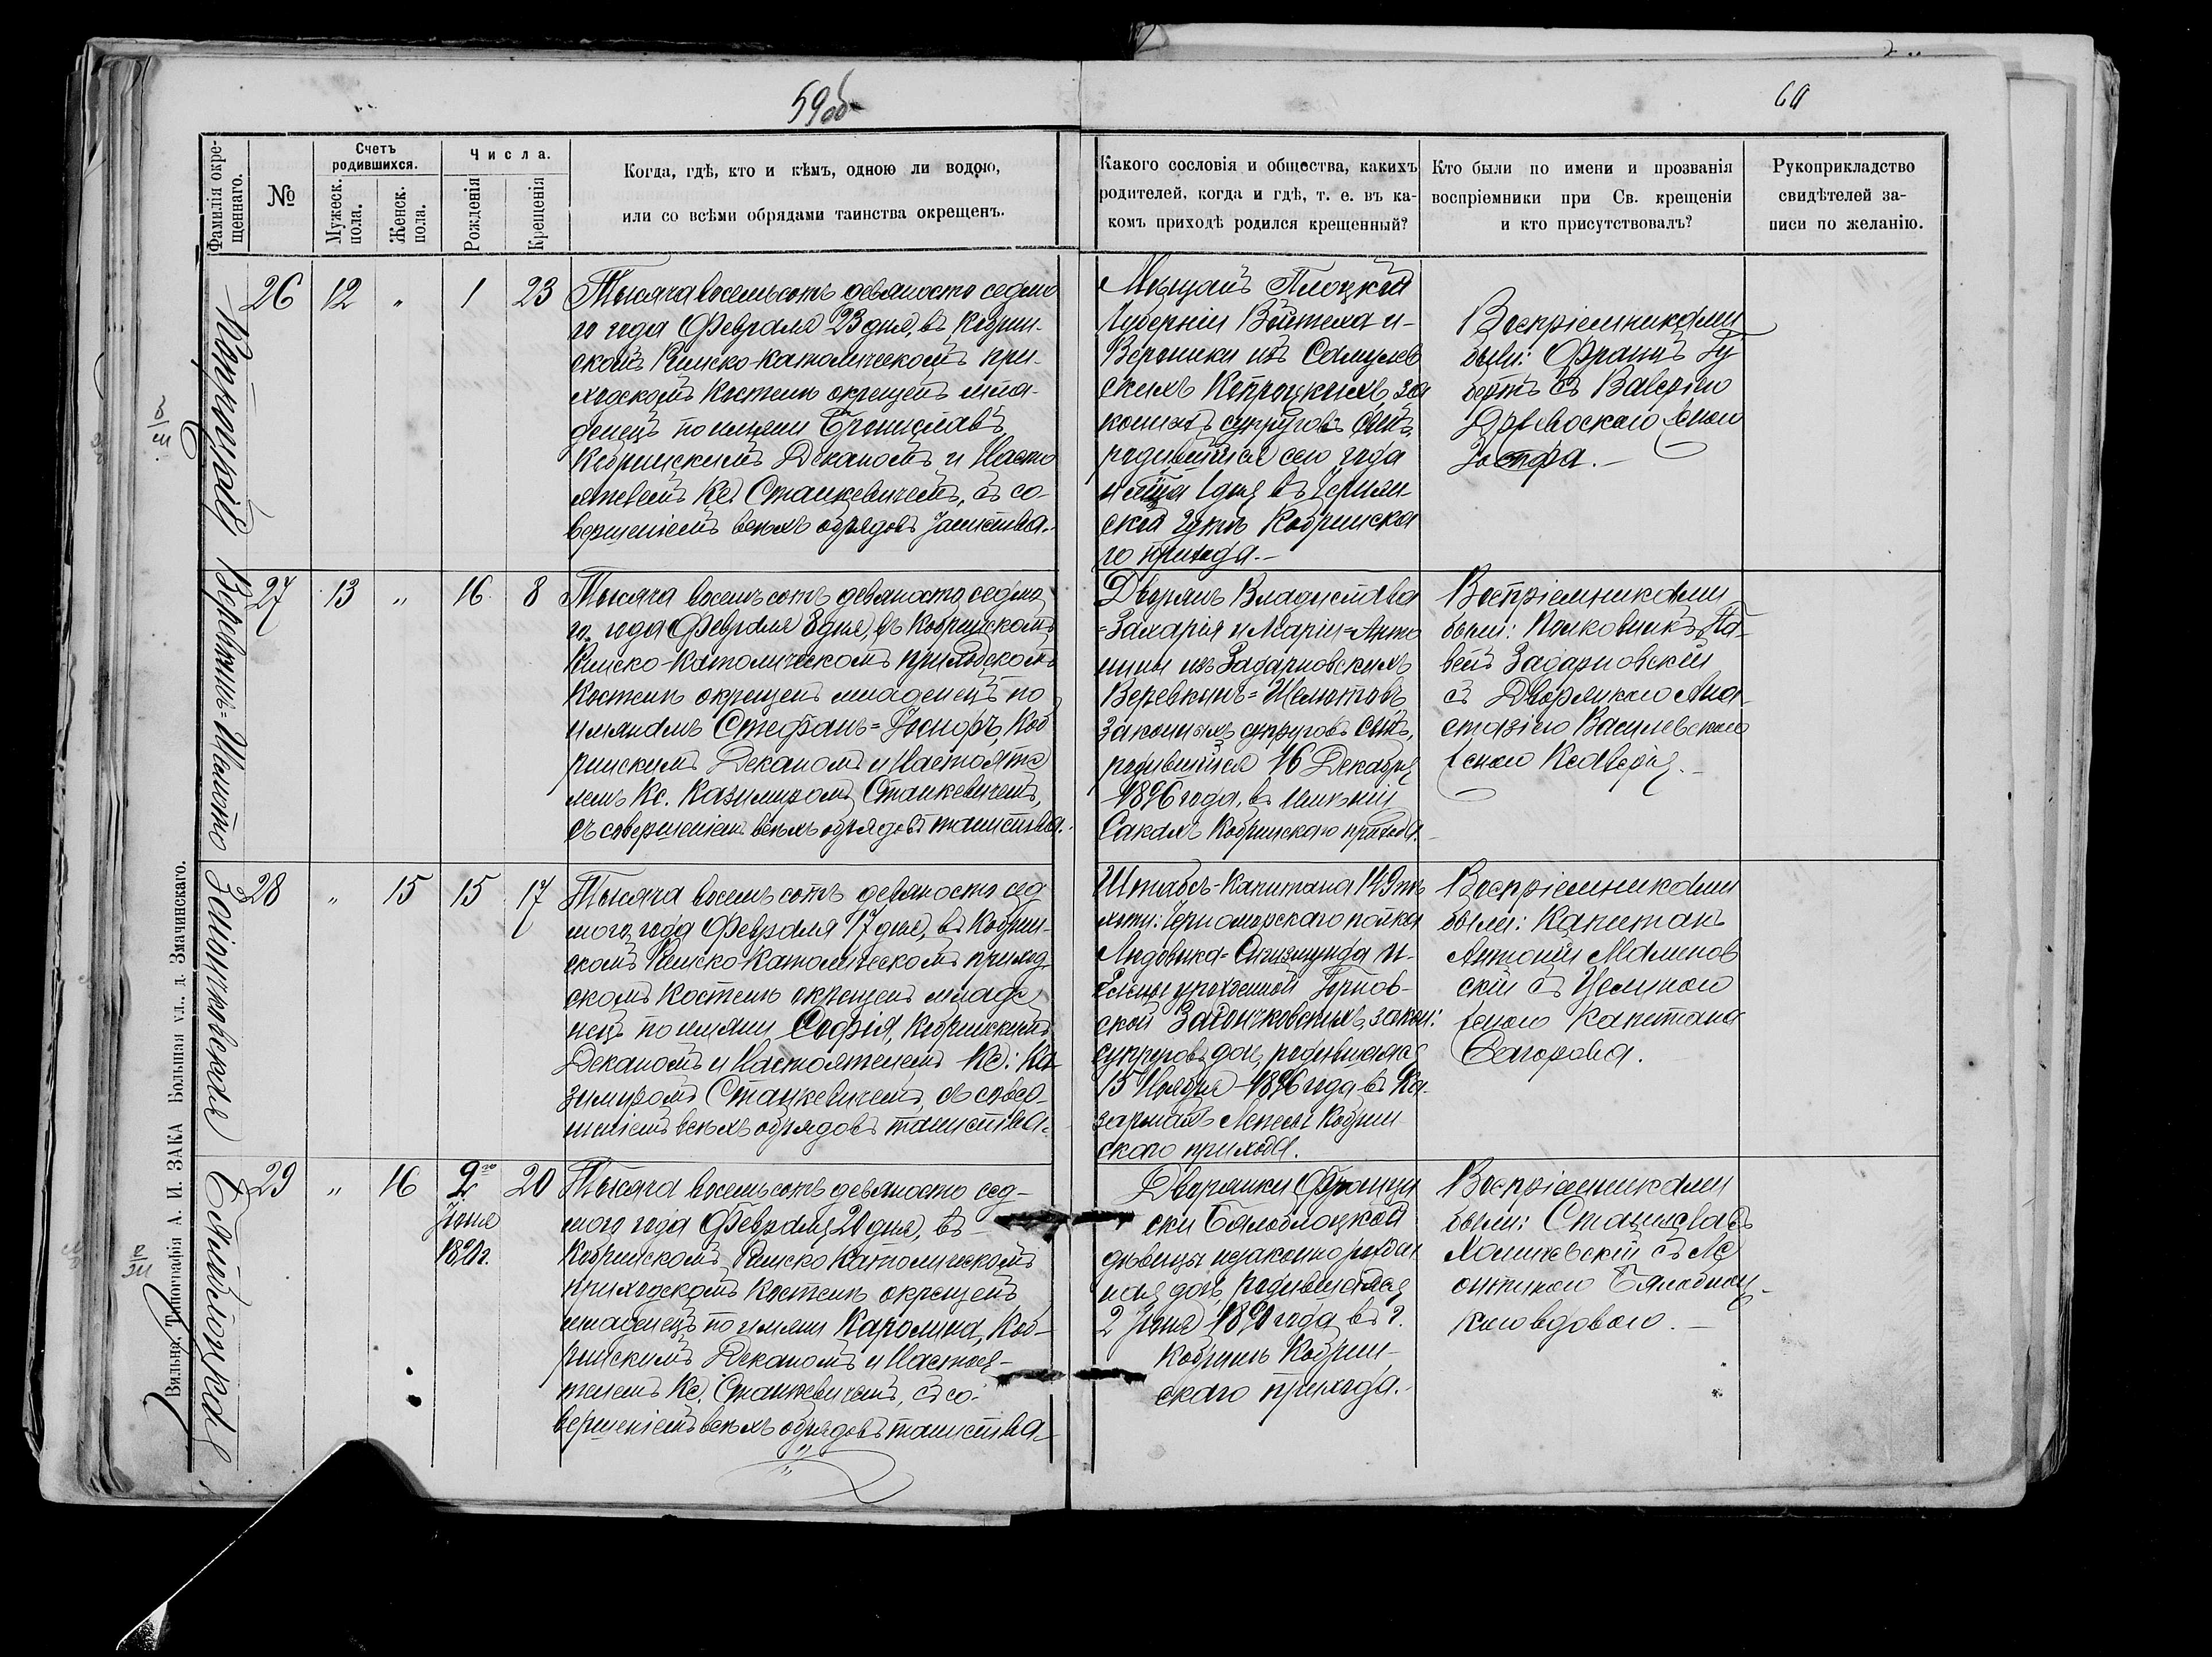 59об
60
Фамилія окре-
щеннаго.
№
Счетъ
родившихся.
Мужеск.
пола.
Женск.
пола.
Числа.
Рожденія
Крещенія
Когда, гдѣ, кто и кѣмъ, одною ли водою,
или со всѣми обрядами таинства окрещенъ.
Какого сословія и общества, какихъ
родителей, когда и гдѣ, т. е. въ ка-
комъ приходѣ родился крещенный?
Кто были по имени и прозванія
воспріемники при Св. крещеніи
и кто присутствовалъ?
Рукоприкладство
свидѣтелей за-
писи по желанію.
26 12 " 1 23
Тысяча восемьсотъ девяносто седмо
го года Февраля 23 дня, въ Кобрин-
скомъ Римско-католическомъ при-
ходскомъ Костелѣ окрещенъ мла-
денецъ по имени Брониславъ
Кобринскимъ Деканомъ и Насто
ятелемъ Кс. Станкевичемъ, съ со-
вершеніемъ всѣхъ обрядовъ таинства.
Мѣщанъ Плоцкой
Губерніи Войтеха и
Вероники изъ
скихъ за
конныхъ супруговъ сынъ,
родившійся сего года
1 дня въ
ской Кобринска
го прихода.
Воспріемниками
были: Францъ Гу
бертъ съ Валеріею
женою
Іосифа.
Веревкинъ=Шелюто
27 13 " 16 8
Тысяча восемьсотъ девяносто седмо
го года Февраля 8 дня, въ Кобринскомъ
Римско-Католическомъ приходскомъ
Костелѣ окрещенъ младенецъ по
имянамъ Стефанъ=Исидоръ, Коб
ринскимъ Деканомъ и Настояте
лемъ Кс. Казимиромъ Станкевичемъ,
съ совершеніемъ всѣхъ обрядовъ таинства.
Дворянъ Владислава
=Захарія и Маріи=Анто
нины изъ Задарновскихъ
Веревкинъ=Шелютовъ,
законныхъ супруговъ сынъ,
родившійся 16 Декабря
1896 года, въ имѣніи
Сакахъ Кобринскаго прихода.
Воспріемниками
были: Полковникъ Па-
велъ Задарновскій
съ Дворянкою Ана-
стазіею Василевскою
женою Ксаверія.
Заіончковская
28 " 15 15 17
Тысяча восемьсотъ девяносто сед
мого года Февраля 17 дня, въ Кобрин-
скомъ Римско-Католическомъ приход
скомъ Костелѣ окрещенъ младе
нецъ по имяни Софія, Кобринскимъ
Деканомъ и Настоятелемъ Кс: Ка-
зимиромъ Станкевичемъ, съ совер-
шеніемъ всѣхъ обрядовъ таинства.
Штабсъ-Капитана 149 пѣ
хотн: Черноморскаго полка
Людовика=Сигизмунда и
Елены урожденной Горнов-
ской Заіончковскихъ, закон:
супруговъ дочь, родившаяся
15 Ноября 1896 года въ Ка-
зармахъ Кобрин
скаго прихода.
Воспріемниками
были: Капитанъ
Антоній Малинов
скій съ Целиною
женою Капитана
29 " 16 2го 20
Іюня
Тысяча восемьсотъ девяносто сед-
мого года Февраля 20 дня, въ
Кобринскомъ Римско Католическомъ
приходскомъ Костелѣ окрещенъ
младенецъ по имяни Каролина, Коб-
ринскимъ Деканомъ и Настоя-
телемъ Кс. Станкевичемъ, съ со-
вершеніемъ всѣхъ обрядовъ таинства.
Дворянки Францы
ски Бялоблоцкой
дѣвицы незаконно рожден
ная дочь, родившаяся
2 Іюня года въ г.
Кобринѣ Кобрин-
скаго прихода.
Воспріемниками
были: Станиславъ
съ Ле
онтиною Бялоблоц-
кою вдовою.
Вильна, Типографія А. И. ЗАКА Большая ул., д. Змачинскаго.